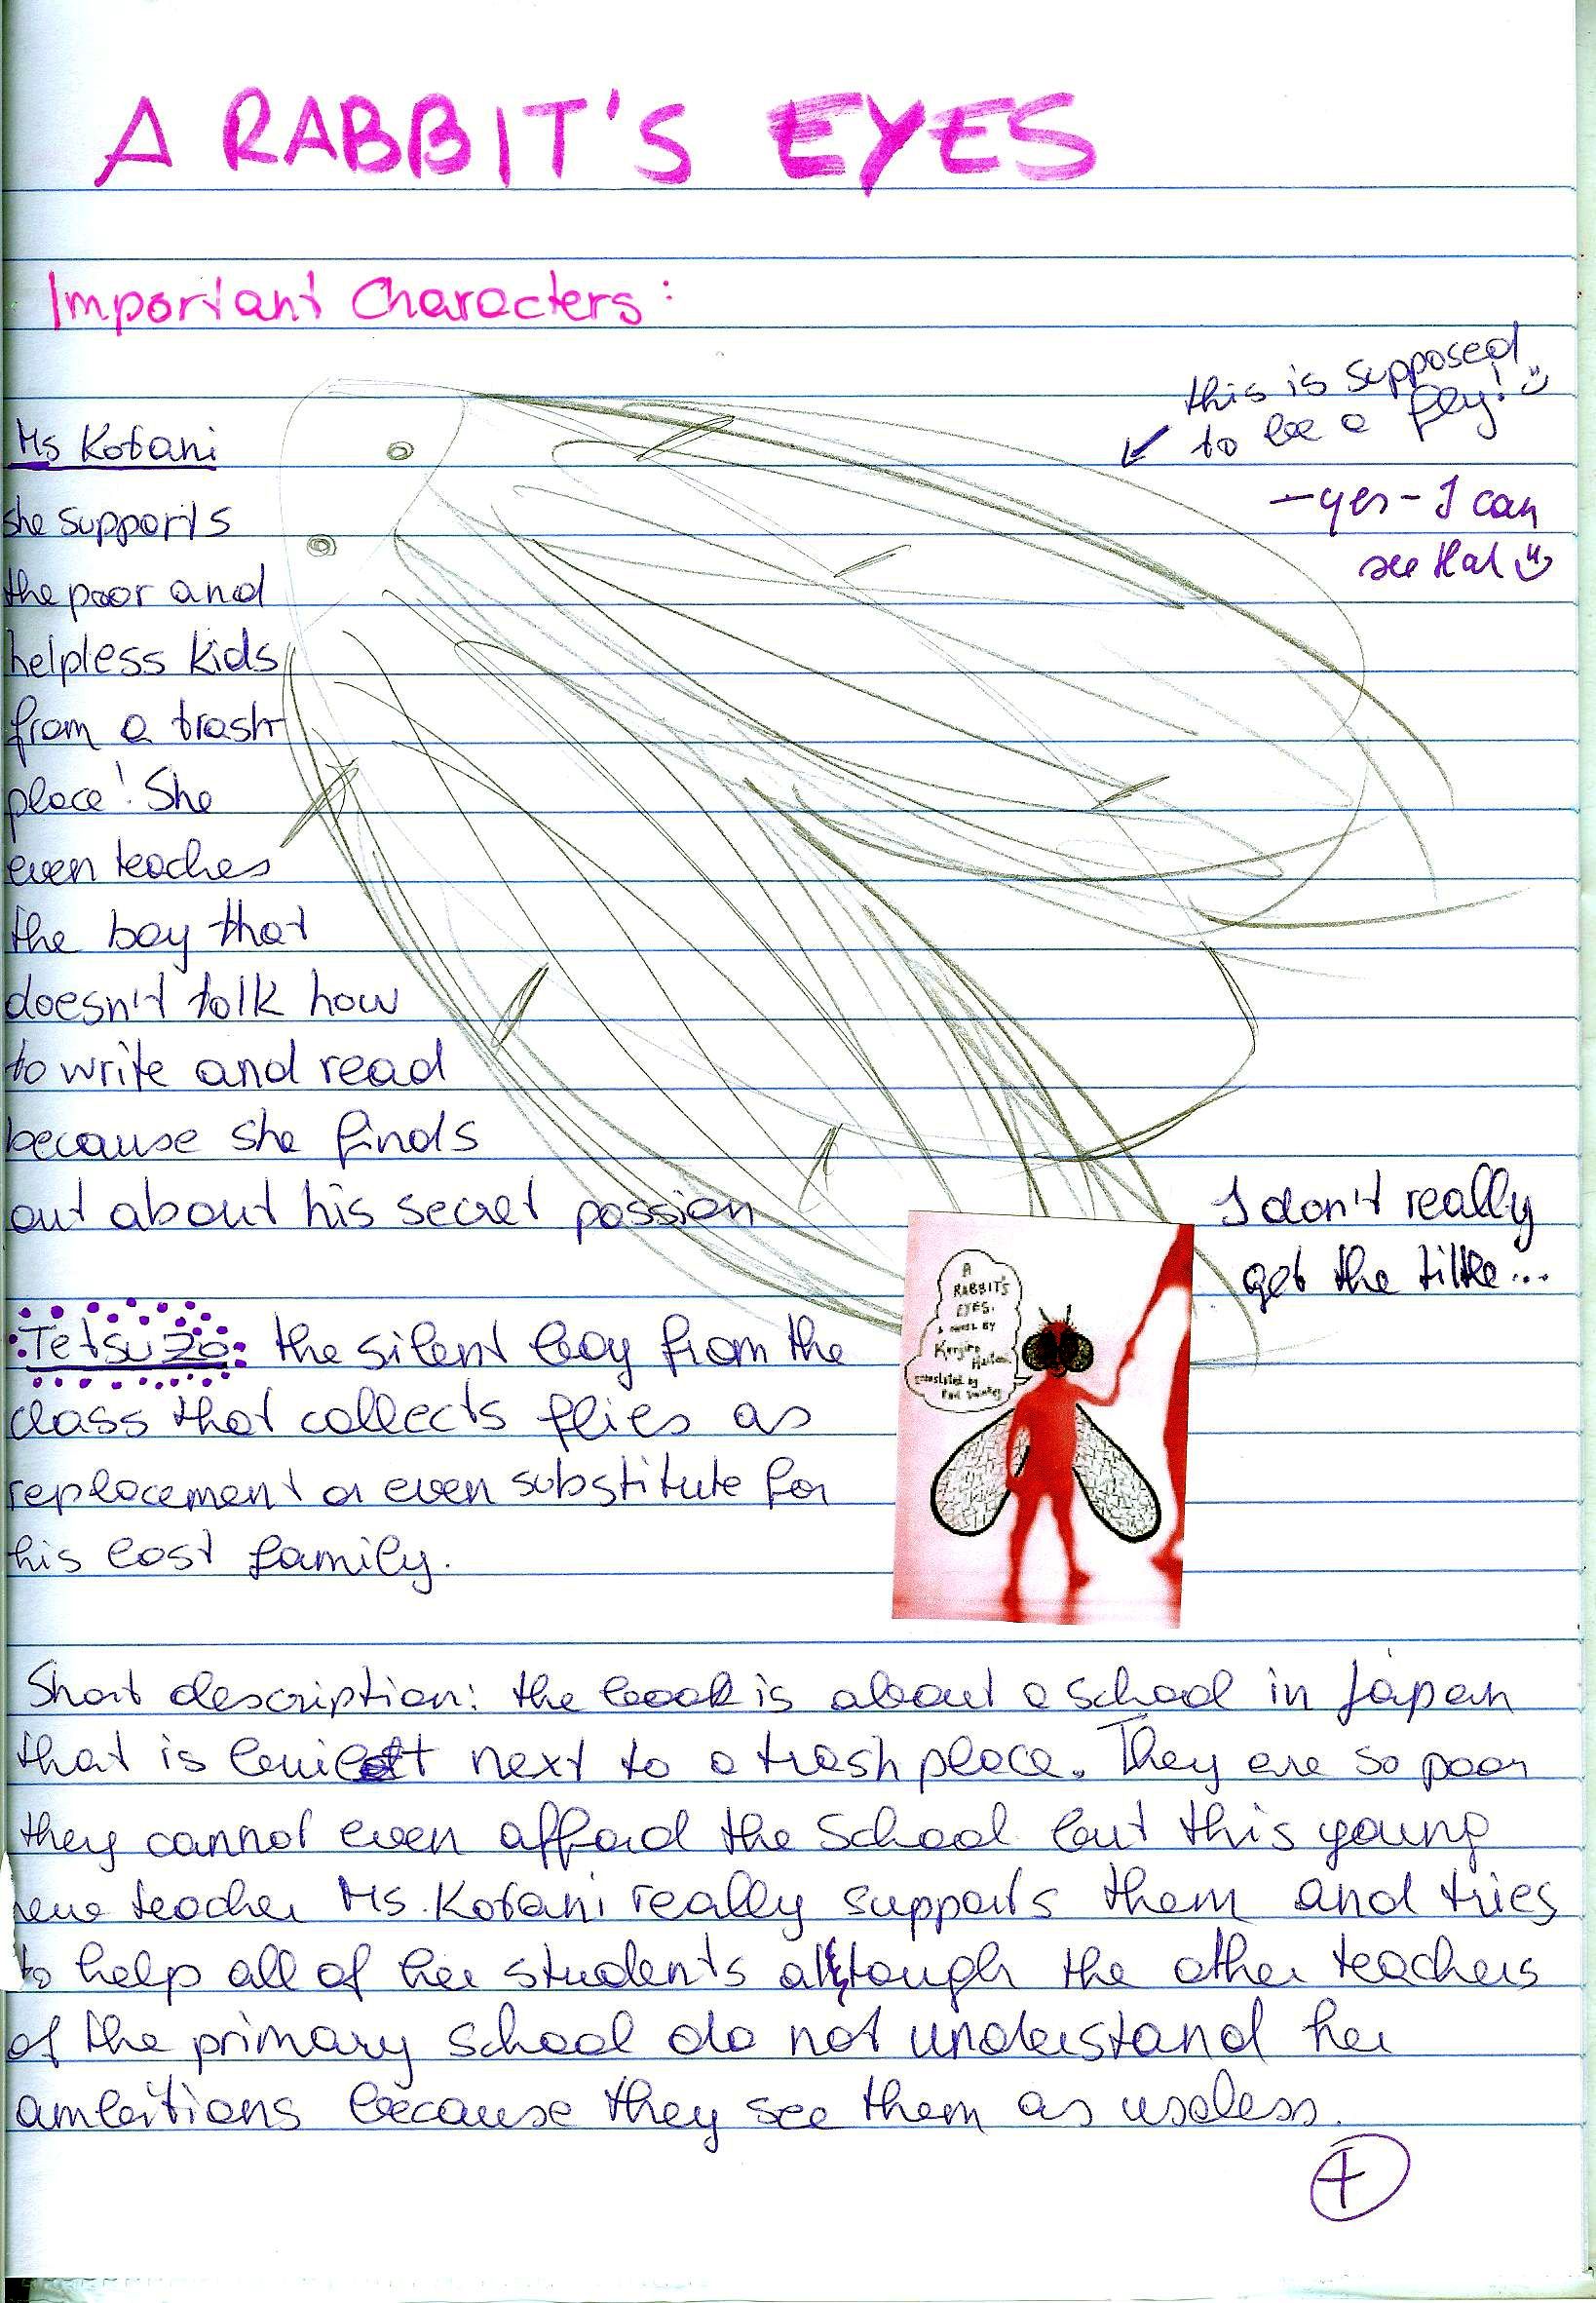 A RABBIT'S EYES
Important Characters:
this is supposed
to be a fly!
-yes - I can
see that
Ms Kotani
she supports
the poor and
helpless kids
from a trash
place! She
even teaches
the boy that
doesn't talk how
to write and read
because she finds
out about his secret passion
I don't really
get the tittle...
Tetsuzo: the silent boy from the
class that collects flies as
replacement or even substitute for
his lost family.
A
RABBIT'S
EYES.
A NOVEL BY
Kenjiro
translated by
Short description: the book is about a school in Japan
that is built next to a trash place. They are so poor
they cannot even afford the school but this young
new teacher Ms. Kotani really supports them and tries
to help all of her students altough the other teachers
of the primary school do not understand her
ambitions because they see them as useless.
+